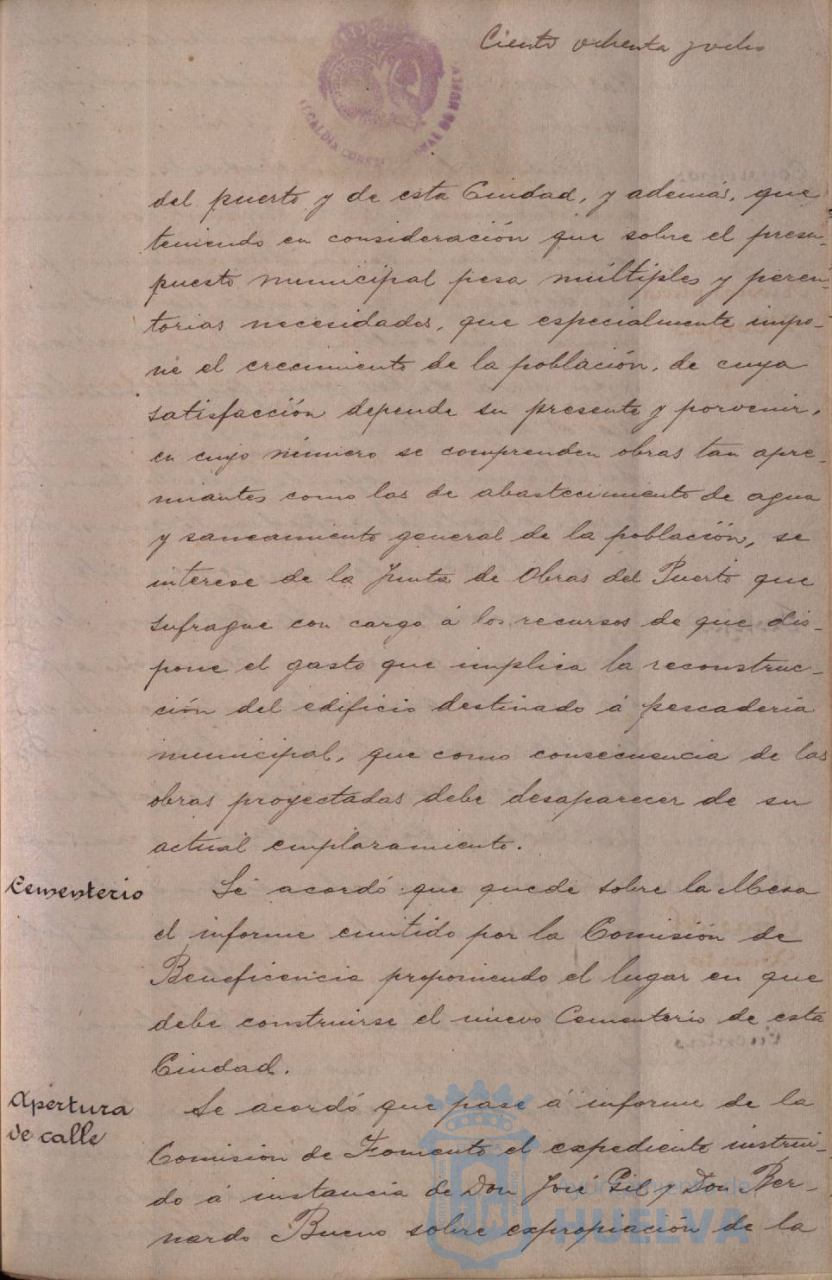 Ciento ochenta y ocho
ALCALDIA CONSTITUCIONAL DE HUELVA
del puerto y de esta Ciudad, y además, que
teniendo en consideración que sobre el presu-
puesto municipal pesa múltiples y peren-
torias necesidades, que especialmente impo-
ne el crecimiento de la población, de cuya
satisfacción depende su presente y porvenir,
en cuyo número se comprenden obras tan apre-
miantes como las de abastecimiento de agua
y saneamiento general de la población, se
interese de la Junta de Obras del Puerto que
sufrague con cargo á los recursos de que dis-
pone el gasto que implica la reconstruc-
ción del edificio destinado á pescadería
municipal, que como consecuencia de las
obras proyectadas debe desaparecer de su
actual emplazamiento.
Cementerio Se acordó que quede sobre la Mesa
el informe emitido por la Comisión de
Beneficencia proponiendo el lugar en que
debe construirse el nuevo Cementerio de esta
Ciudad.
Apertura de calle Se acordó que pase á informe de la
Comisión de Fomento el expediente instrui-
do á instancia de Don José Gil y Don Ber-
nardo Bueno sobre expropiación de la
HUELVA